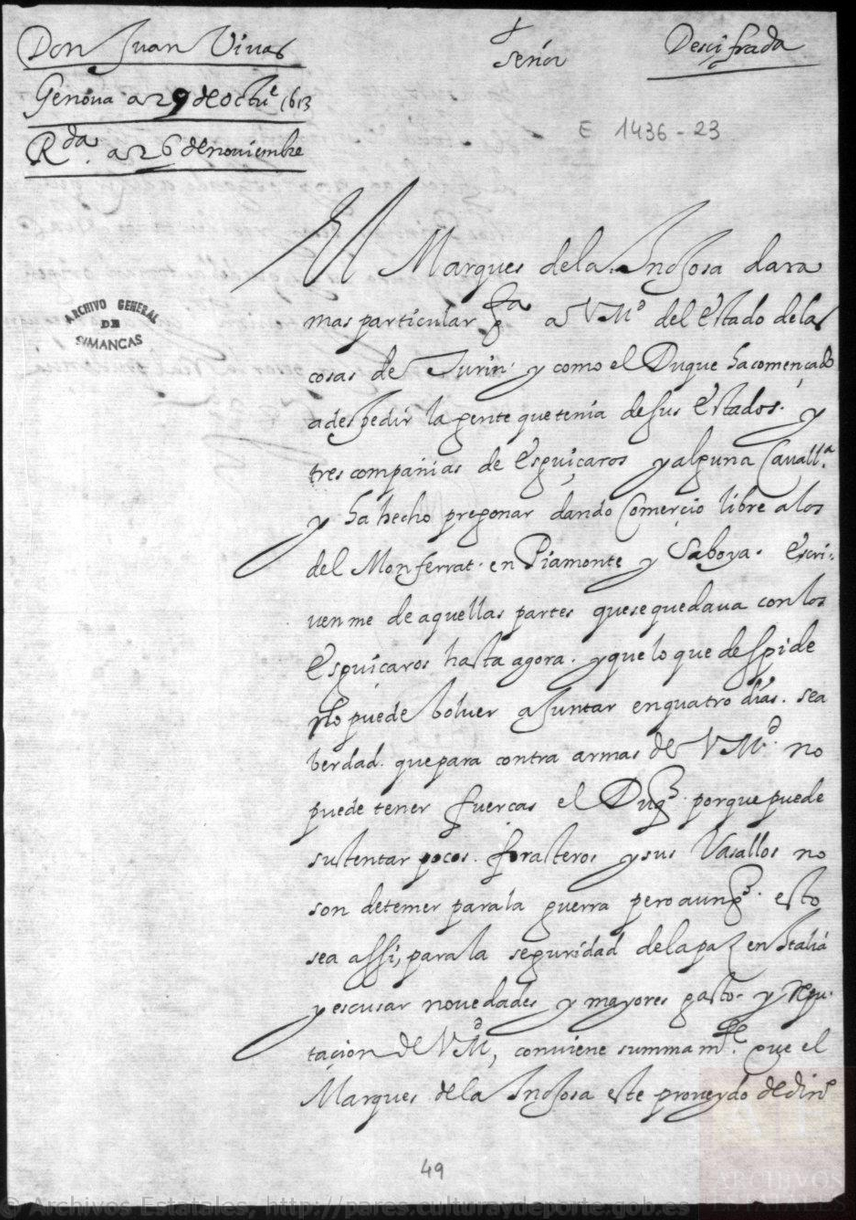 Don Juan Vivas
Genova a 29 de octue 1613
Rda. a 26 de noviembre
+
Señor
Descifrada
E 1436-23
ARCHIVO GENERAL
DE
SIMANCAS
El Marques de la Inojosa dara
mas particular qta a VMd del estado de las
cosas de Turin. y como el Duque ha començado
a despedir la gente que tenia de sus estados. y
tres compañias de esguiçaros y alguna Cavalla
y ha hecho pregonar dando Comerçio libre a los
del Monferrat. en Piamonte y Saboya. Escri-
uen me de aquellas partes que se quedaua con los
esguiçaros hasta agora. y que lo que despide
lo puede boluer a Juntar en quatro dias. sea
berdad. que para contra armas de VMd. no
puede tener fuercas el Duqe. porque puede
sustentar pocos. forasteros y sus Vasallos no
son de temer para la guerra pero aunqe. esto
sea assi, para la seguridad de la paz en Italia
y escusar novedades y mayores gasto. y repu-
taçion de VMd, conviene summamte. que el
Marques de la Inojosa este proueydo de dinº
49
© Archivos Estatales, http://pares.culturaydeporte.gob.es
ARCHIVOS
ESTATALES